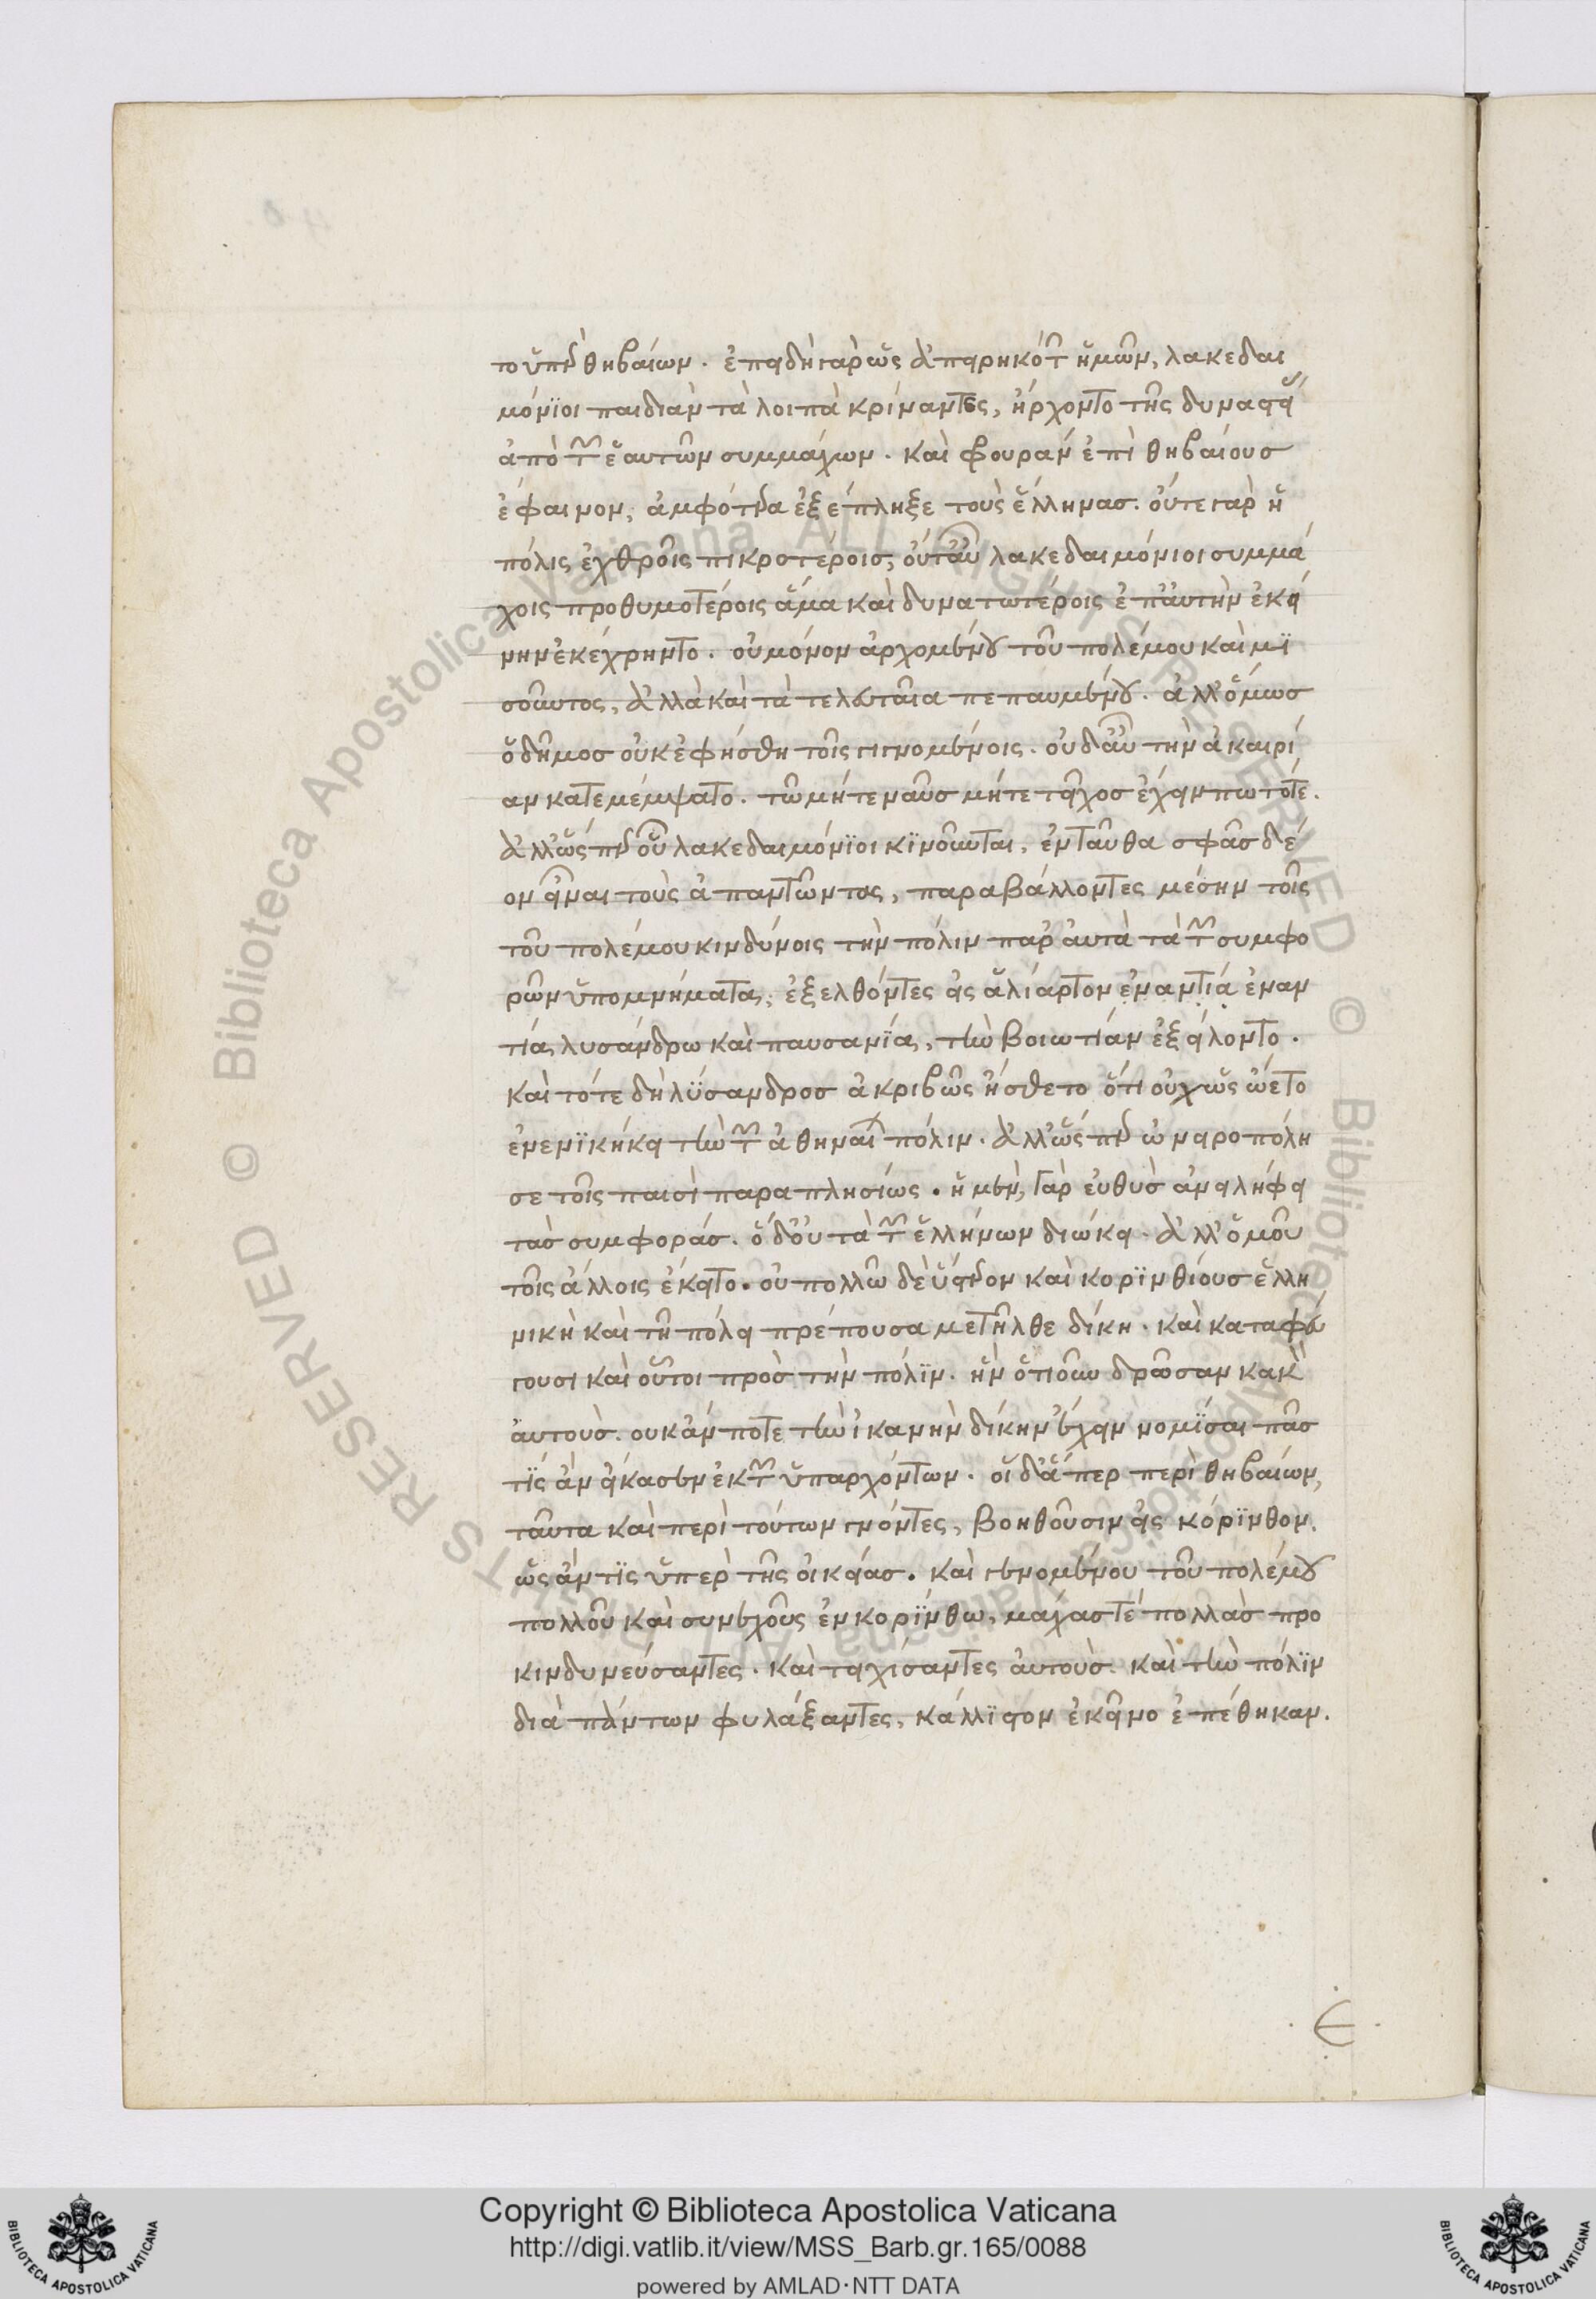 το ὑπὲρ θηβαίων. ἐπειδὴ γὰρ ὡς ἀπειρηκότων ἡμῶν, λακεδαι
μόνϊοι παιδιὰν τὰ λοιπὰ κρίναντες, ἤρχοντο τῆς δυναστείας
ἀπὸ τῶν ἑαυτῶν συμμάχων. καὶ φρουρὰν ἐπὶ θηβαίους
ἔφαινον, ἀμφότερα ἐξέπληξε τοὺς ἕλληνας. οὔτε γὰρ ἡ
πόλις ἐχθροῖς πικροτέροις, οὔτ' αὖ λακεδαιμόνιοι συμμά
χοις προθυμοτέροις ἅμα καὶ δυνατωτέροις ἐπ' αὐτὴν ἐκεί
νην ἐκέχρηντο. οὐ μόνον ἀρχομένου τοῦ πολέμου καὶ μϊ
σοῦντος, ἀλλὰ καὶ τὰ τελευταῖα πεπαυμένου. ἀλλ' ὅμως
ὁ δῆμος οὐκ ἐφήσθη τοῖς γιγνομένοις. οὐδ' αὖ τὴν ἀκαιρί
αν κατεμέμψατο. τῶ μήτε ναῦς μήτε τεῖχος ἔχειν πω τότε.
ἀλλ' ὥσπερ οὗ λακεδαιμόνϊοι κϊνοῦνται, ἐνταῦθα σφᾶς δέ
ον εἶναι τοὺς ἀπαντῶντας, παραβάλλοντες μέσην τοῖς
τοῦ πολέμου κινδύνοις τὴν πόλιν παρ' αὐτὰ τὰ τῶν συμφο
ρῶν ὑπομνήματα, ἐξελθόντες εἰς ἁλίαρτον ἐναντία ἐναν
τία, λυσάνδρω καὶ παυσανία, τὴν βοιωτίαν ἐξείλοντο.
καὶ τότε δὴ λύσανδρος ἀκριβῶς ἤσθετο ὅτι οὐχ ὡς ὤετο
ἐνενϊκήκει τὴν τῶν ἀθηναίων πόλιν. ἀλλ' ὥσπερ ὠνειροπόλη
σε τοῖς παισὶ παραπλησίως. ἡ μὲν, γὰρ εὐθὺς ἀνειλήφει
τὰς συμφοράς. ὁ δ' οὐ τὰ τῶν ἑλλήνων διώκει. ἀλλ' ὁμοῦ
τοῖς ἄλλοις ἔκειτο. οὐ πολλῶ δὲ ὕστερον καὶ κορϊνθίους ἑλλη
νικὴ καὶ τῆ πόλει πρέπουσα μετῆλθε δίκη. καὶ καταφεύ
γουσι καὶ οὗτοι πρὸς τὴν πόλϊν. ἣν ὁτιοῦν δρῶσαν κακὸν
αὐτοὺς. ουκ ἄν ποτε τὴν ἱκανὴν δίκην ἔχειν νομίσαι πᾶς
τϊς ἂν εἴκασεν ἐκ τῶν ὑπαρχόντων. οἱ δ' ἅπερ περὶ θηβαίων,
ταῦτα καὶ περὶ τούτων γνόντες, βοηθοῦσιν εἰς κόρϊνθον.
ὡς ἄν τϊς ὑπὲρ τῆς οἰκείας. καὶ γενομένου τοῦ πολέμου
πολλοῦ καὶ συνεχοῦς ἐν κορϊνθω, μάχας τὲ πολλὰς προ
κινδυνεύσαντες. καὶ τειχίσαντες αὐτοὺς. καὶ τὴν πόλϊν
διὰ πάντων φυλάξαντες, κάλλϊστον ἐκεῖνο ἐπέθηκαν.
ε
Copyright © Biblioteca Apostolica Vaticana
http://digi.vatlib.it/view/MSS_Barb.gr.165/0088
powered by AMLAD·NTT DATA